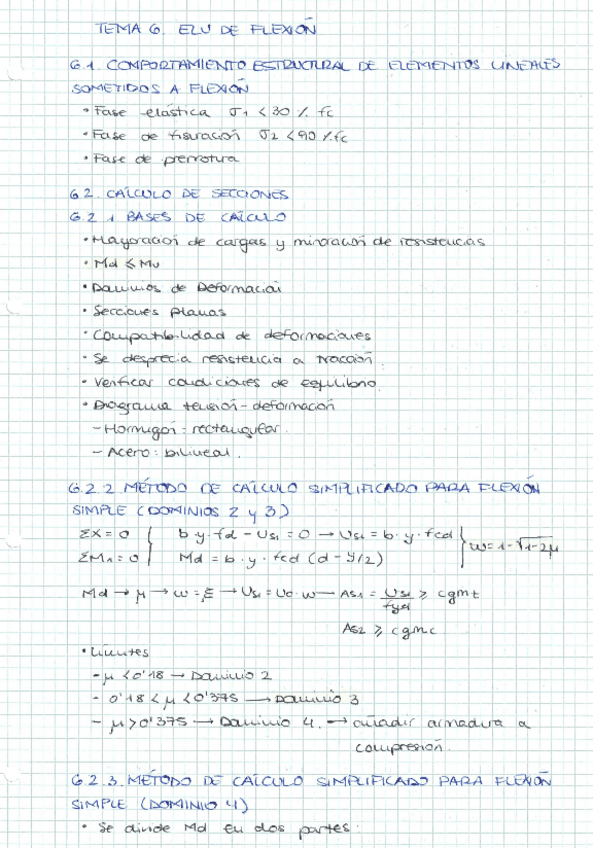 TEMA 6. ELU DE FLEXIÓN
6.1. COMPORTAMIENTO ESTRUCTURAL DE ELEMENTOS LINEALES
SOMETIDOS A FLEXIÓN
• Fase elástica σ1 < 30 % fc
• Fase de fisuración σ2 < 90 % fc
• Fase de prerrotura
6.2. CÁLCULO DE SECCIONES
6.2.1 BASES DE CÁLCULO
• Mayoración de cargas y minoración de resistencias
• Md ≤ Mu
• Dominios de Deformación
• Secciones planas
• Compatibilidad de deformaciones
• Se desprecia resistencia a tracción.
• Verificar condiciones de equilibrio.
• Diagrama tensión-deformación
- Hormigón: rectangular.
- Acero: bilineal.
6.2.2. MÉTODO DE CÁLCULO SIMPLIFICADO PARA FLEXIÓN
SIMPLE (DOMINIOS 2 y 3)
ΣX = 0 { b·y·fcd - Us1 = 0 → Us1 = b·y·fcd } ω = 1-√1-2μ
ΣM1 = 0 { Md = b·y·fcd (d - y/2)
Md → μ → ω = ξ → Us1 = Uc·ω — As1 = Us1/fyd ≥ cgmt
As2 ≥ cgmc
• Límites
- μ < 0'18 → Dominio 2
- 0'18 < μ < 0'375 → Dominio 3
- μ > 0'375 → Dominio 4. → añadir armadura a
compresión.
6.2.3. MÉTODO DE CÁLCULO SIMPLIFICADO PARA FLEXIÓN
SIMPLE (DOMINIO 4)
• Se divide Md en dos partes: